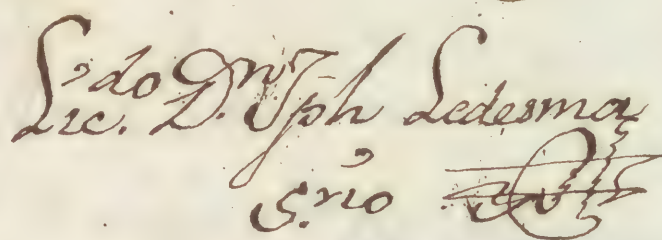 Lic.do D.n Jph Ledesma
S.rio